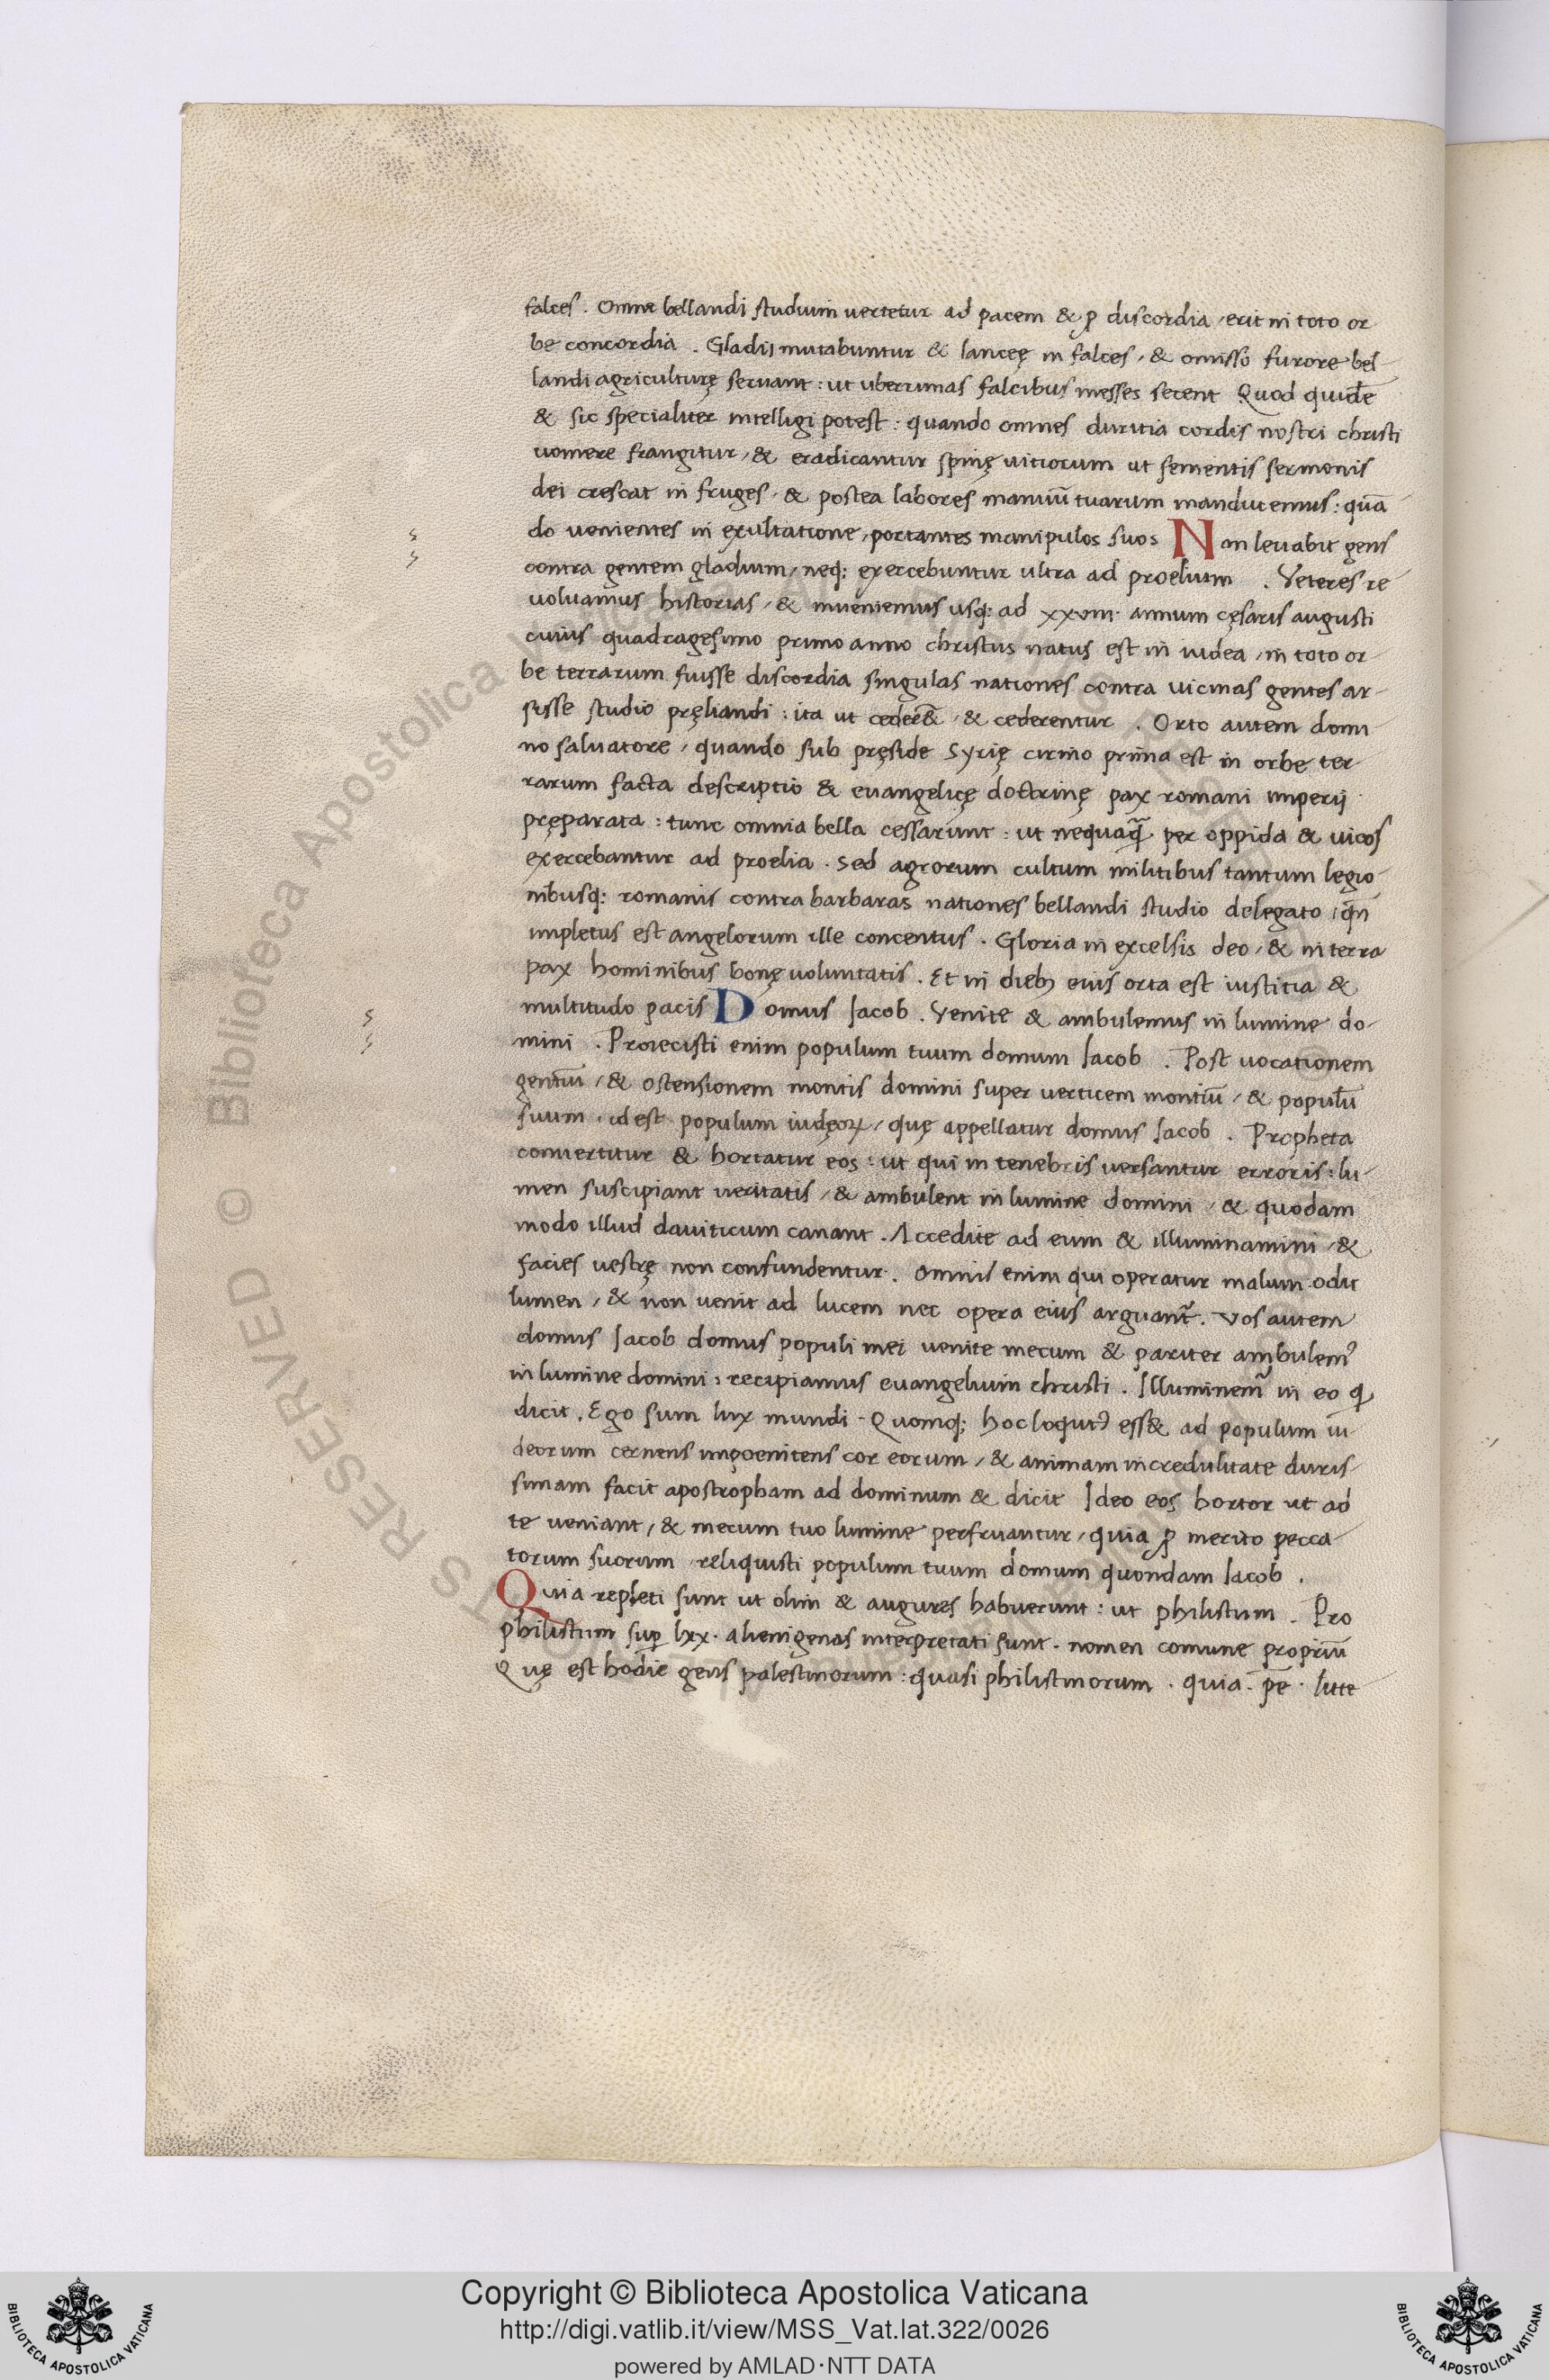 falces. Omne bellandi studium vertetur ad pacem & ꝓ discordia, erit in toto or
be concordia. Gladij mutabuntur & lanceę in falces, & omisso furore bel
landi agriculturę servant: ut uberrimas falcibus messes secent Quod quidē
& sic specialiter intelligi potest: quando omnes duritia cordis nostri christi
vomere frangitur, & eradicantur spinę vitiorum ut sementis sermonis
dei crescat in fruges, & postea labores manuū tuarum manducemus: quā
do venientes in exultatione, portantes manipulos suos Non levabit gens
contra gentem gladium, neq; exercebuntur ultra ad proelium. Veteres re
volvamus historias, & inveniemus usq; ad xxvm. annum cęsaris augusti
cuius quadragesimo primo anno christus natus est in iudea, in toto or
be terrarum fuisse discordia singulas nationes contra vicinas gentes ar-
sisse studio pręliandi: ita ut ceder&̄, & cederentur. Orto autem domi
no salvatore, quando sub pręside Syrię cirino prima est in orbe ter
rarum facta descriptio & evangelicę doctrinę pax romani imperij
pręparata: tunc omnia bella cessarunt: ut nequaq̃ per oppida & vicos
exercebantur ad proelia. Sed agrorum cultum militibus tantum legio-
nibusq; romanis contra barbaras nationes bellandi studio delegato, qñ
impletus est angelorum ille concentus. Gloria in excelsis deo, & in terra
pax hominibus bonę voluntatis. Et in dieb; eius orta est iustitia &
multitudo pacis Domus Iacob. Venite & ambulemus in lumine do-
mini. Proiecisti enim populum tuum domum Iacob. Post vocationem
gentiū, & ostensionem montis domini super verticem montiū, & populū
suum. idest populum iudęoꝝ, quę appellatur domus Iacob. Propheta
convertitur & hortatur eos: ut qui in tenebris versantur erroris: lu-
men suscipiant veritatis, & ambulent in lumine domini, & quodam
modo illud daviticum canant. Accedite ad eum & illuminamini, &
facies vestrę non confundentur. Omnis enim qui operatur malum odit
lumen, & non venit ad lucem nec opera eius arguant̃. Vos autem
domus Iacob domus populi mei venite mecum & pariter ambulemꝰ
in lumine domini: recipiamus evangelium christi. Illuminem̃ in eo q̃
dicit. Ego sum lux mundi. Quomq; hoc loqutꝰ ess& ad populum iu-
deorum cernens impoenitens cor eorum, & animam incredulitate duris-
simam facit apostropham ad dominum & dicit Ideo eos hortor ut ad
te veniant, & mecum tuo lumine perfruantur, quia ꝓ merito pecca
torum suorum, reliquisti populum tuum domum quondam Iacob.
Quia repleti sunt ut olim & augures habuerunt: ut philistum. Pro
philistum suꝑ lxx. alienigenas interpretati sunt. nomen comune propriū
Quę est hodie gens palestinorum: quasi philistinorum. quia. pe̅. litte
Copyright © Biblioteca Apostolica Vaticana
http://digi.vatlib.it/view/MSS_Vat.lat.322/0026
powered by AMLAD·NTT DATA
BIBLIOTECA APOSTOLICA VATICANA
BIBLIOTECA APOSTOLICA VATICANA